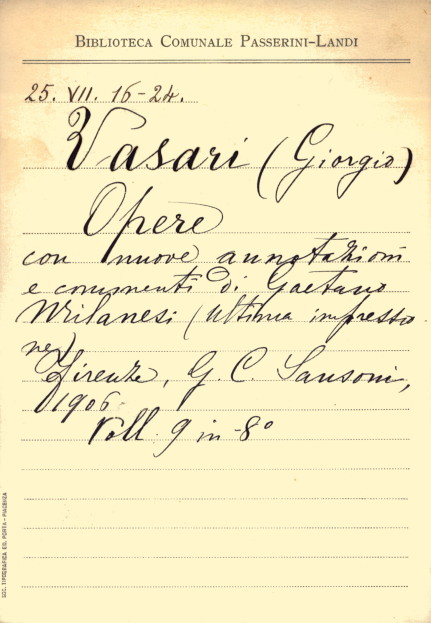 BIBLIOTECA COMUNALE PASSERINI-LANDI
25. VII. 16-24.
Vasari (Giorgio)
Opere
con nuove annotazioni
e commenti di Gaetano
Milanesi (ultima impressio
ne)
Firenze, G. C. Sansoni,
1906.
Voll. 9 in-8°
SOC. TIPOGRAFICA ED. PORTA - PIACENZA